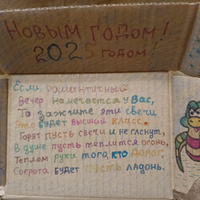 НОВЫМ ГОДОМ!
2025 ГОДОМ!
Если романтичный
Вечер намечается у Вас,
То зажгите эти свечи
Это будет высший класс.
Горят пусть свечи и не гаснут,
В душе пусть теплится огонь,
Теплом руки того, кто дорог,
Согрета будет пусть ладонь.